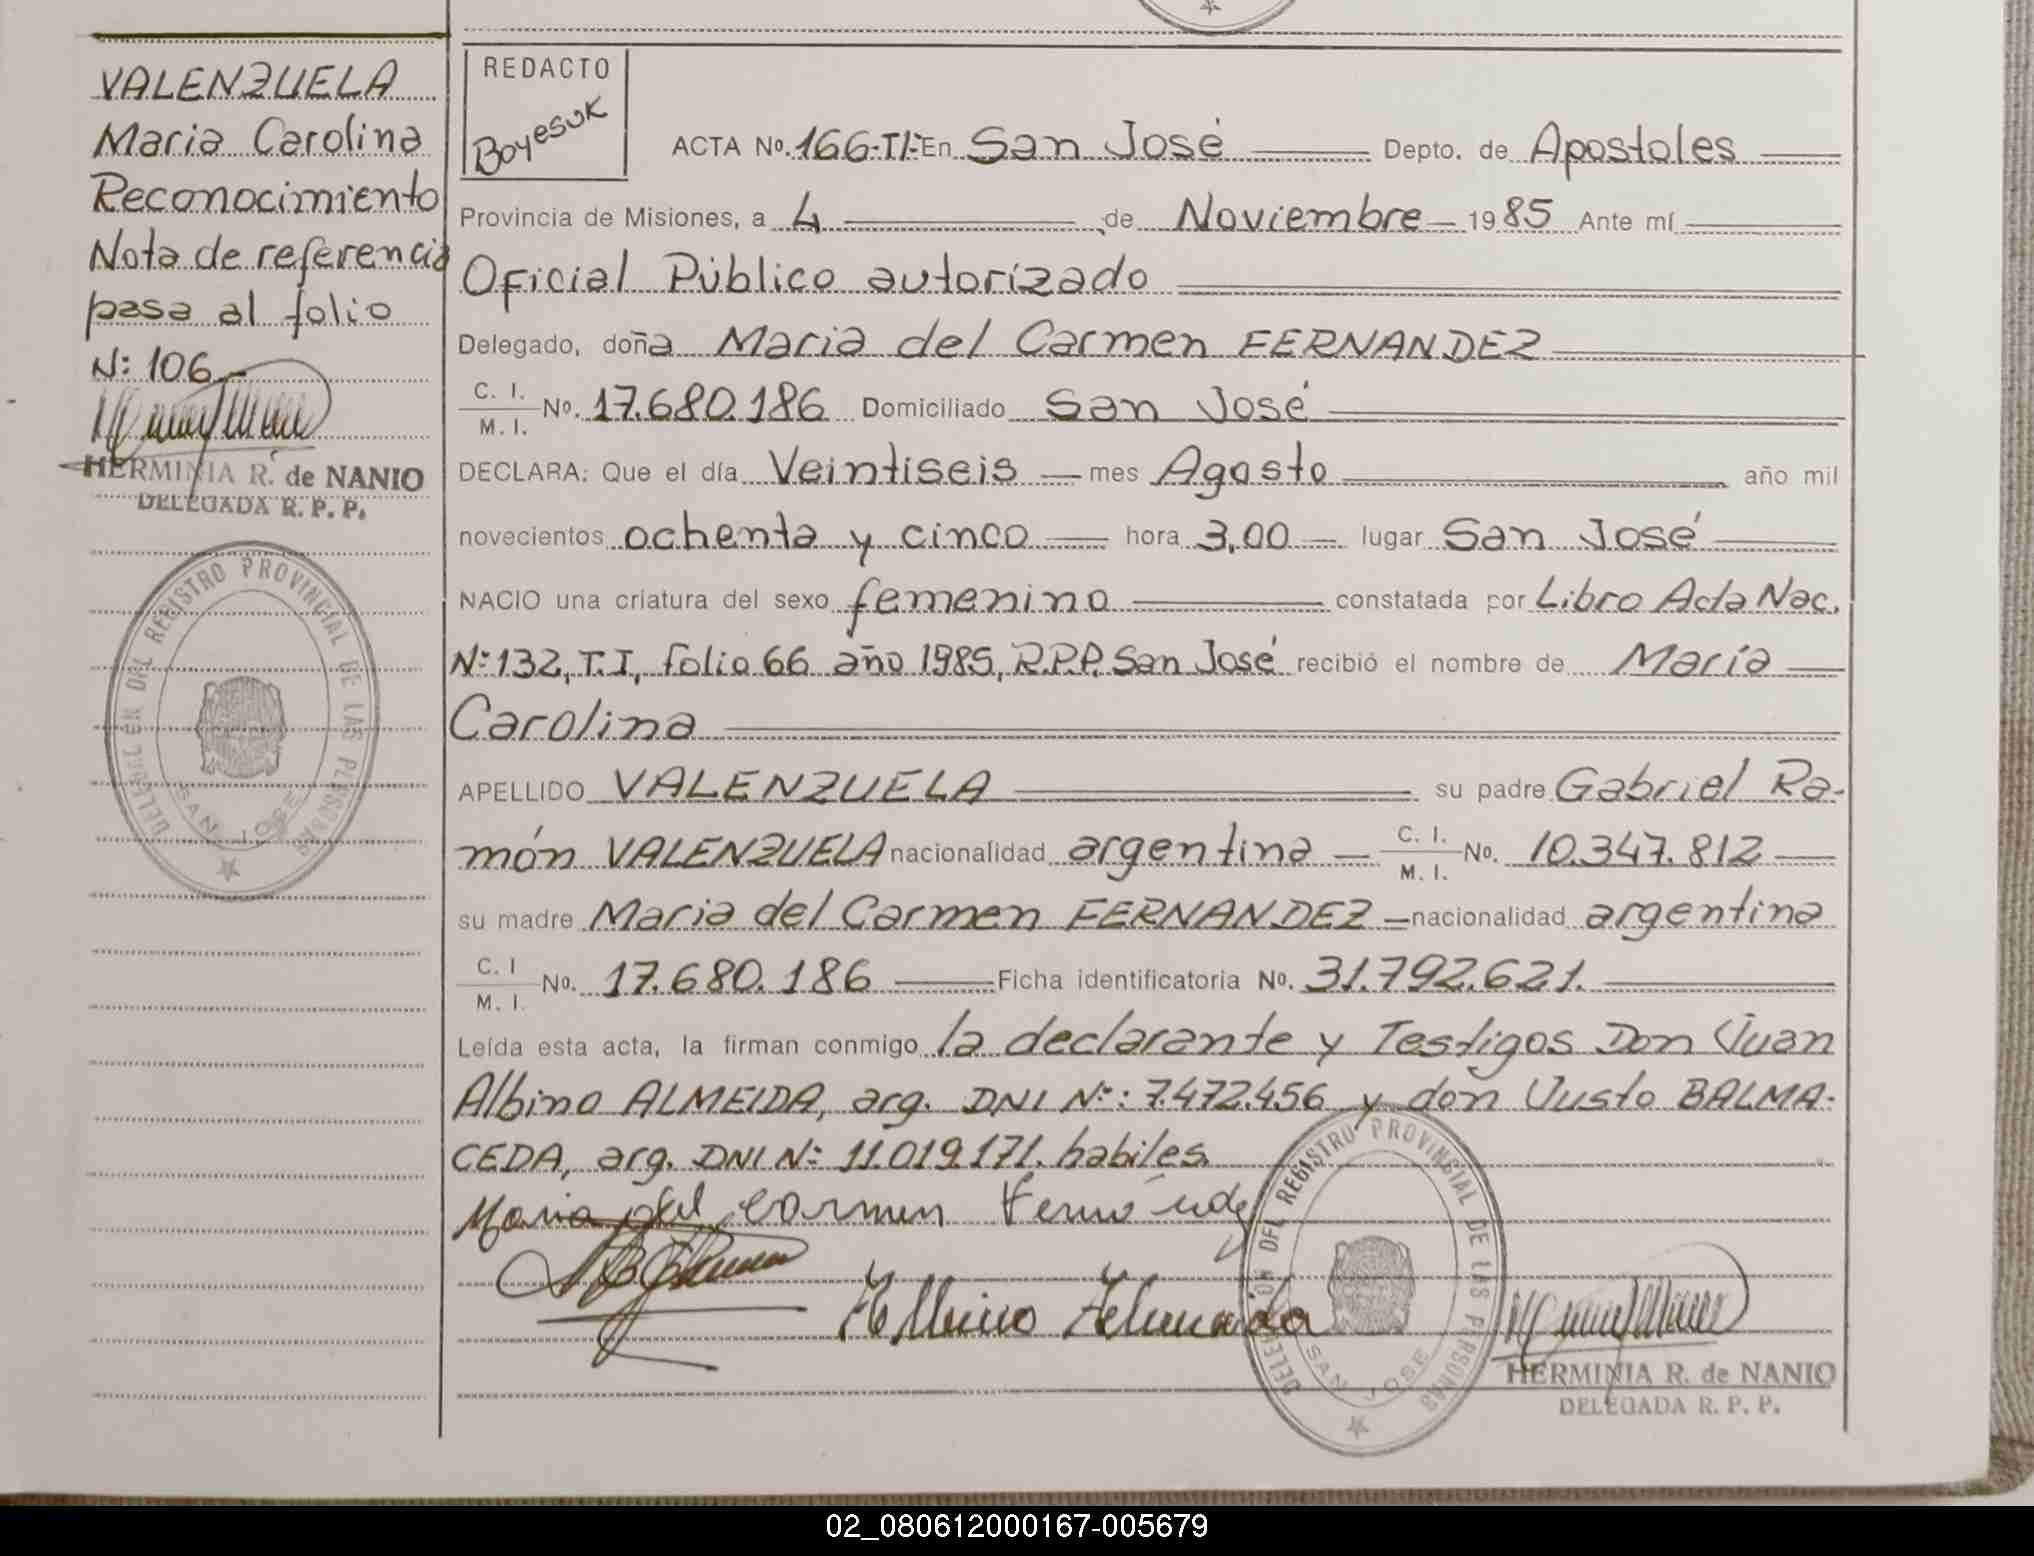 VALENZUELA
Maria Carolina
Reconocimiento
Nota de referencia
pasa al folio
Nº 106
HERMINIA R. de NANIO
DELEGADA R. P. P.
DELEGACIÓN DEL REGISTRO PROVINCIAL DE LAS PERSONAS
SAN JOSE
REDACTO
Boyesuk
ACTA No. 166-TI- En San José Depto. de Apostoles
Provincia de Misiones, a 4 de Noviembre 1985 Ante mí
Oficial Público autorizado
Delegado, doña Maria del Carmen FERNANDEZ
C. I. / M. I. No. 17.680.186 Domiciliado San José
DECLARA: Que el día Veintiseis mes Agosto año mil
novecientos ochenta y cinco hora 3,00 lugar San José
NACIO una criatura del sexo femenino constatada por Libro Acta Nac.
Nº 132, T.I, folio 66 año 1985, R.P.P. San José recibió el nombre de María
Carolina
APELLIDO VALENZUELA su padre Gabriel Ra-
món VALENZUELA nacionalidad argentina C. I. / M. I. No. 10.347.812
su madre Maria del Carmen FERNANDEZ nacionalidad argentina
C. I / M. I. No. 17.680.186 Ficha identificatoria No. 31.792.621.
Leída esta acta, la firman conmigo la declarante y Testigos Don Juan
Albino ALMEIDA, arg. DNI Nº: 7.472.456 y don Justo BALMA-
CEDA, arg. DNI Nº 11.019.171. habiles
Maria del Carmen Fernández
DELEGACIÓN DEL REGISTRO PROVINCIAL DE LAS PERSONAS
SAN JOSE
HERMINIA R. de NANIO
DELEGADA R. P. P.
02_080612000167-005679